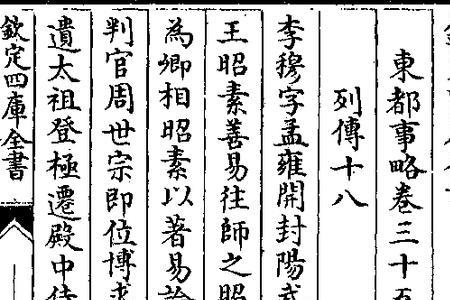 東都事略卷三十五
列傳十八
李穆字孟雍開封陽武
王昭素善易往師之昭
為卿相昭素以著易論
判官周世宗即位博求
遺太祖登極遷殿中侍
欽定四庫全書